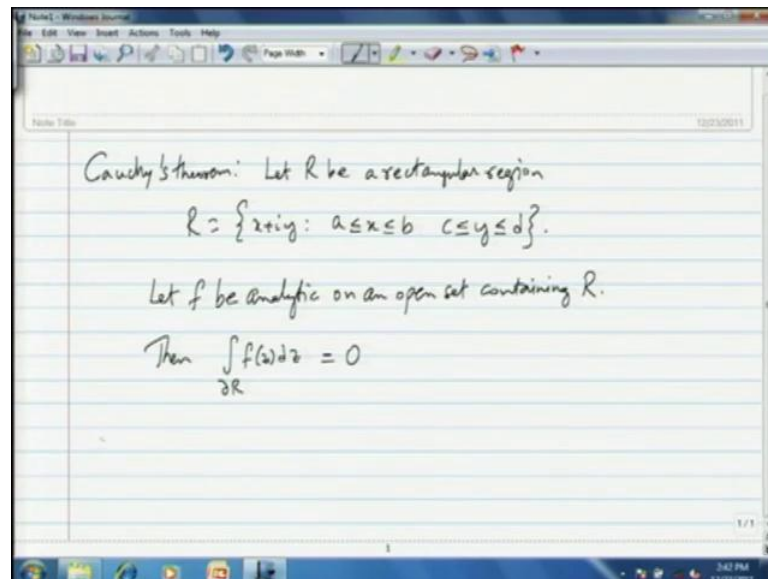 Note1 - Windows Journal
File Edit View Insert Actions Tools Help
Page Width
Note Title
12/23/2011
Cauchy's theorem: Let R be a rectangular region
R = {x+iy : a≤x≤b c≤y≤d}.
Let f be analytic on an open set containing R.
Then ∫ f(z)dz = 0
∂R
1/1
1
2:42 PM